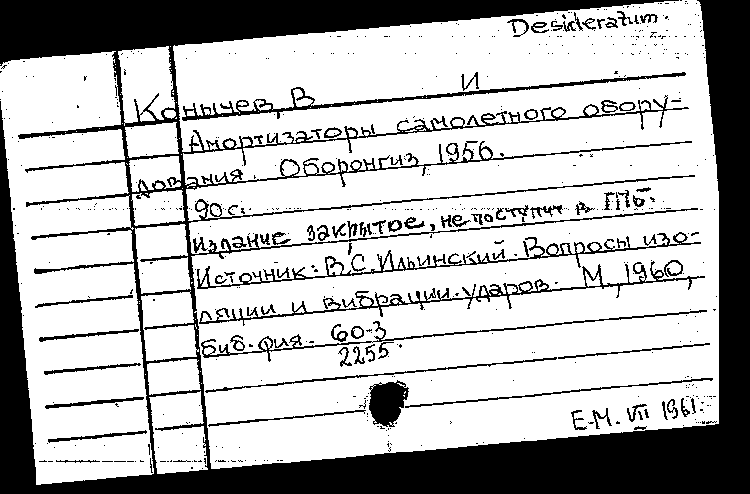 Desideratum.
Конычев, В И
Амортизаторы самолетного обору-
дования. Оборонгиз, 1956.
90 с.
Издание закрытое, не поступит в ГПБ.
Источник: В.С. Ильинский. Вопросы изо-
ляции и вибрации. ударов. М., 1960,
биб-фия. 60-3
2255.
Е.М. VII 1961.